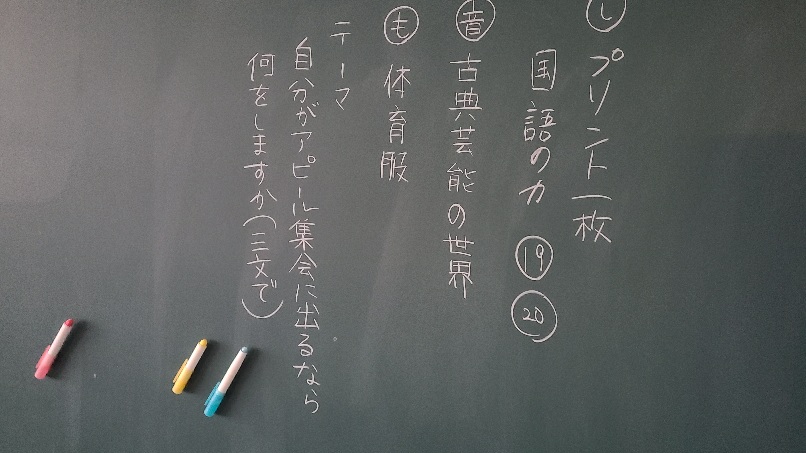 し プリント一枚
国語の力 19 20
音 古典芸能の世界
も 体育服
テーマ
自分がアピール集会に出るなら
何をしますか(三文で)